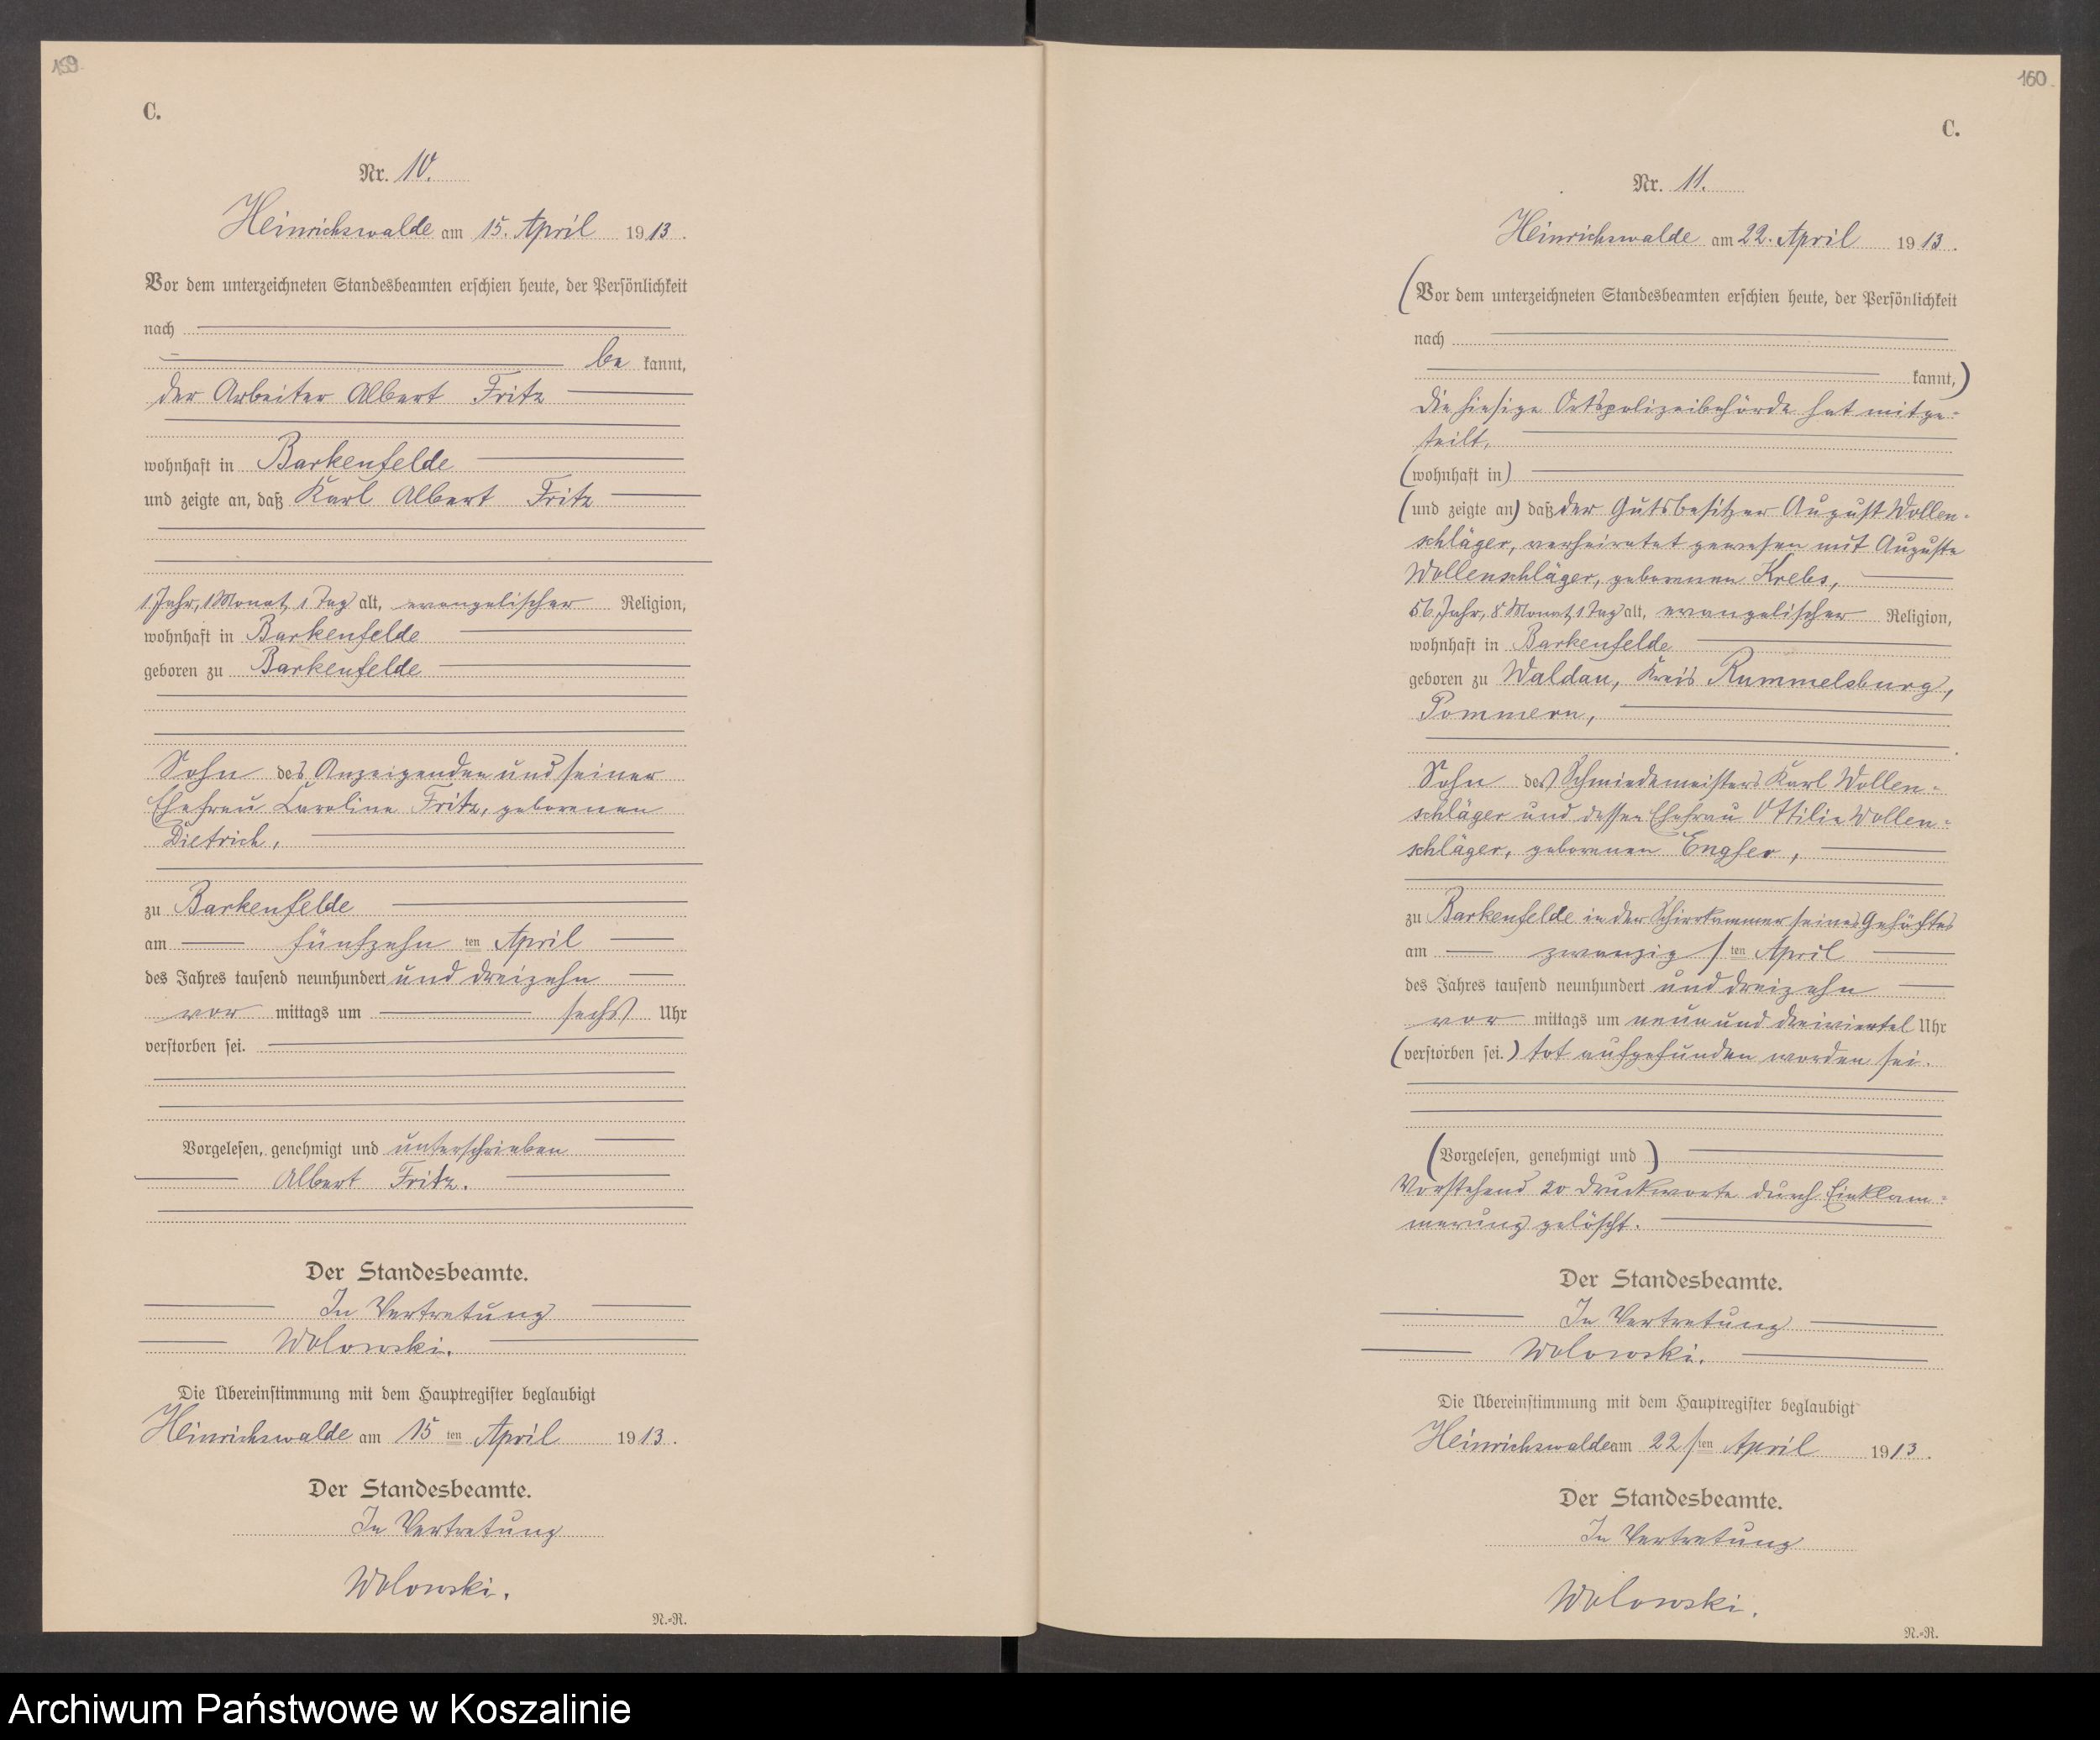 159.
C.
Nr. 10.
Heinrichswalde am 15. April 1913.
Vor dem unterzeichneten Standesbeamten erschien heute, der Persönlichkeit
nach
be kannt,
der Arbeiter Albert Fritz
wohnhaft in Barkenfelde
und zeigte an, daß Karl Albert Fritz
1 Jahr, 1 Monat, 1 Tag alt, evangelischer Religion,
wohnhaft in Barkenfelde
geboren zu Barkenfelde
Sohn des Anzeigenden und seiner
Ehefrau Karoline Fritz, geborenen
Dietrich,
zu Barkenfelde
am fünfzehn ten April
des Jahres tausend neunhundert und dreizehn
vor mittags um sechs Uhr
verstorben sei.
Vorgelesen, genehmigt und unterschrieben
Albert Fritz.
Der Standesbeamte.
In Vertretung
Wolowski.
Die Übereinstimmung mit dem Hauptregister beglaubigt
Heinrichswalde am 15 ten April 1913.
Der Standesbeamte.
In Vertretung
Wolowski.
N.=R.
160.
C.
Nr. 11.
Heinrichswalde am 22. April 1913.
(Vor dem unterzeichneten Standesbeamten erschien heute, der Persönlichkeit
nach
kannt,)
Die hiesige Ortspolizeibehörde hat mitge=
teilt,
(wohnhaft in)
(und zeigte an) daß der Gutsbesitzer August Wollen=
schläger, verheiratet gewesen mit Auguste
Wollenschläger, geborenen Krebs,
56 Jahr, 8 Monat, 1 Tag alt, evangelischer Religion,
wohnhaft in Barkenfelde
geboren zu Waldau, Kreis Rummelsburg,
Pommern,
Sohn des Schmiedemeisters Karl Wollen=
schläger und dessen Ehefrau Ottilie Wollen=
schläger, geborenen Engfer,
zu Barkenfelde in der Schirrkammer seines Gehöftes
am zwanzigsten April
des Jahres tausend neunhundert und dreizehn
vor mittags um neun und dreiviertel Uhr
(verstorben sei.) tot aufgefunden worden sei.
(Vorgelesen, genehmigt und)
Vorstehend 20 Druckworte durch Einklam=
merung gelöscht.
Der Standesbeamte.
In Vertretung
Wolowski.
Die Übereinstimmung mit dem Hauptregister beglaubigt
Heinrichswalde am 22sten April 1913.
Der Standesbeamte.
In Vertretung
Wolowski.
N.=R.
Archiwum Państwowe w Koszalinie